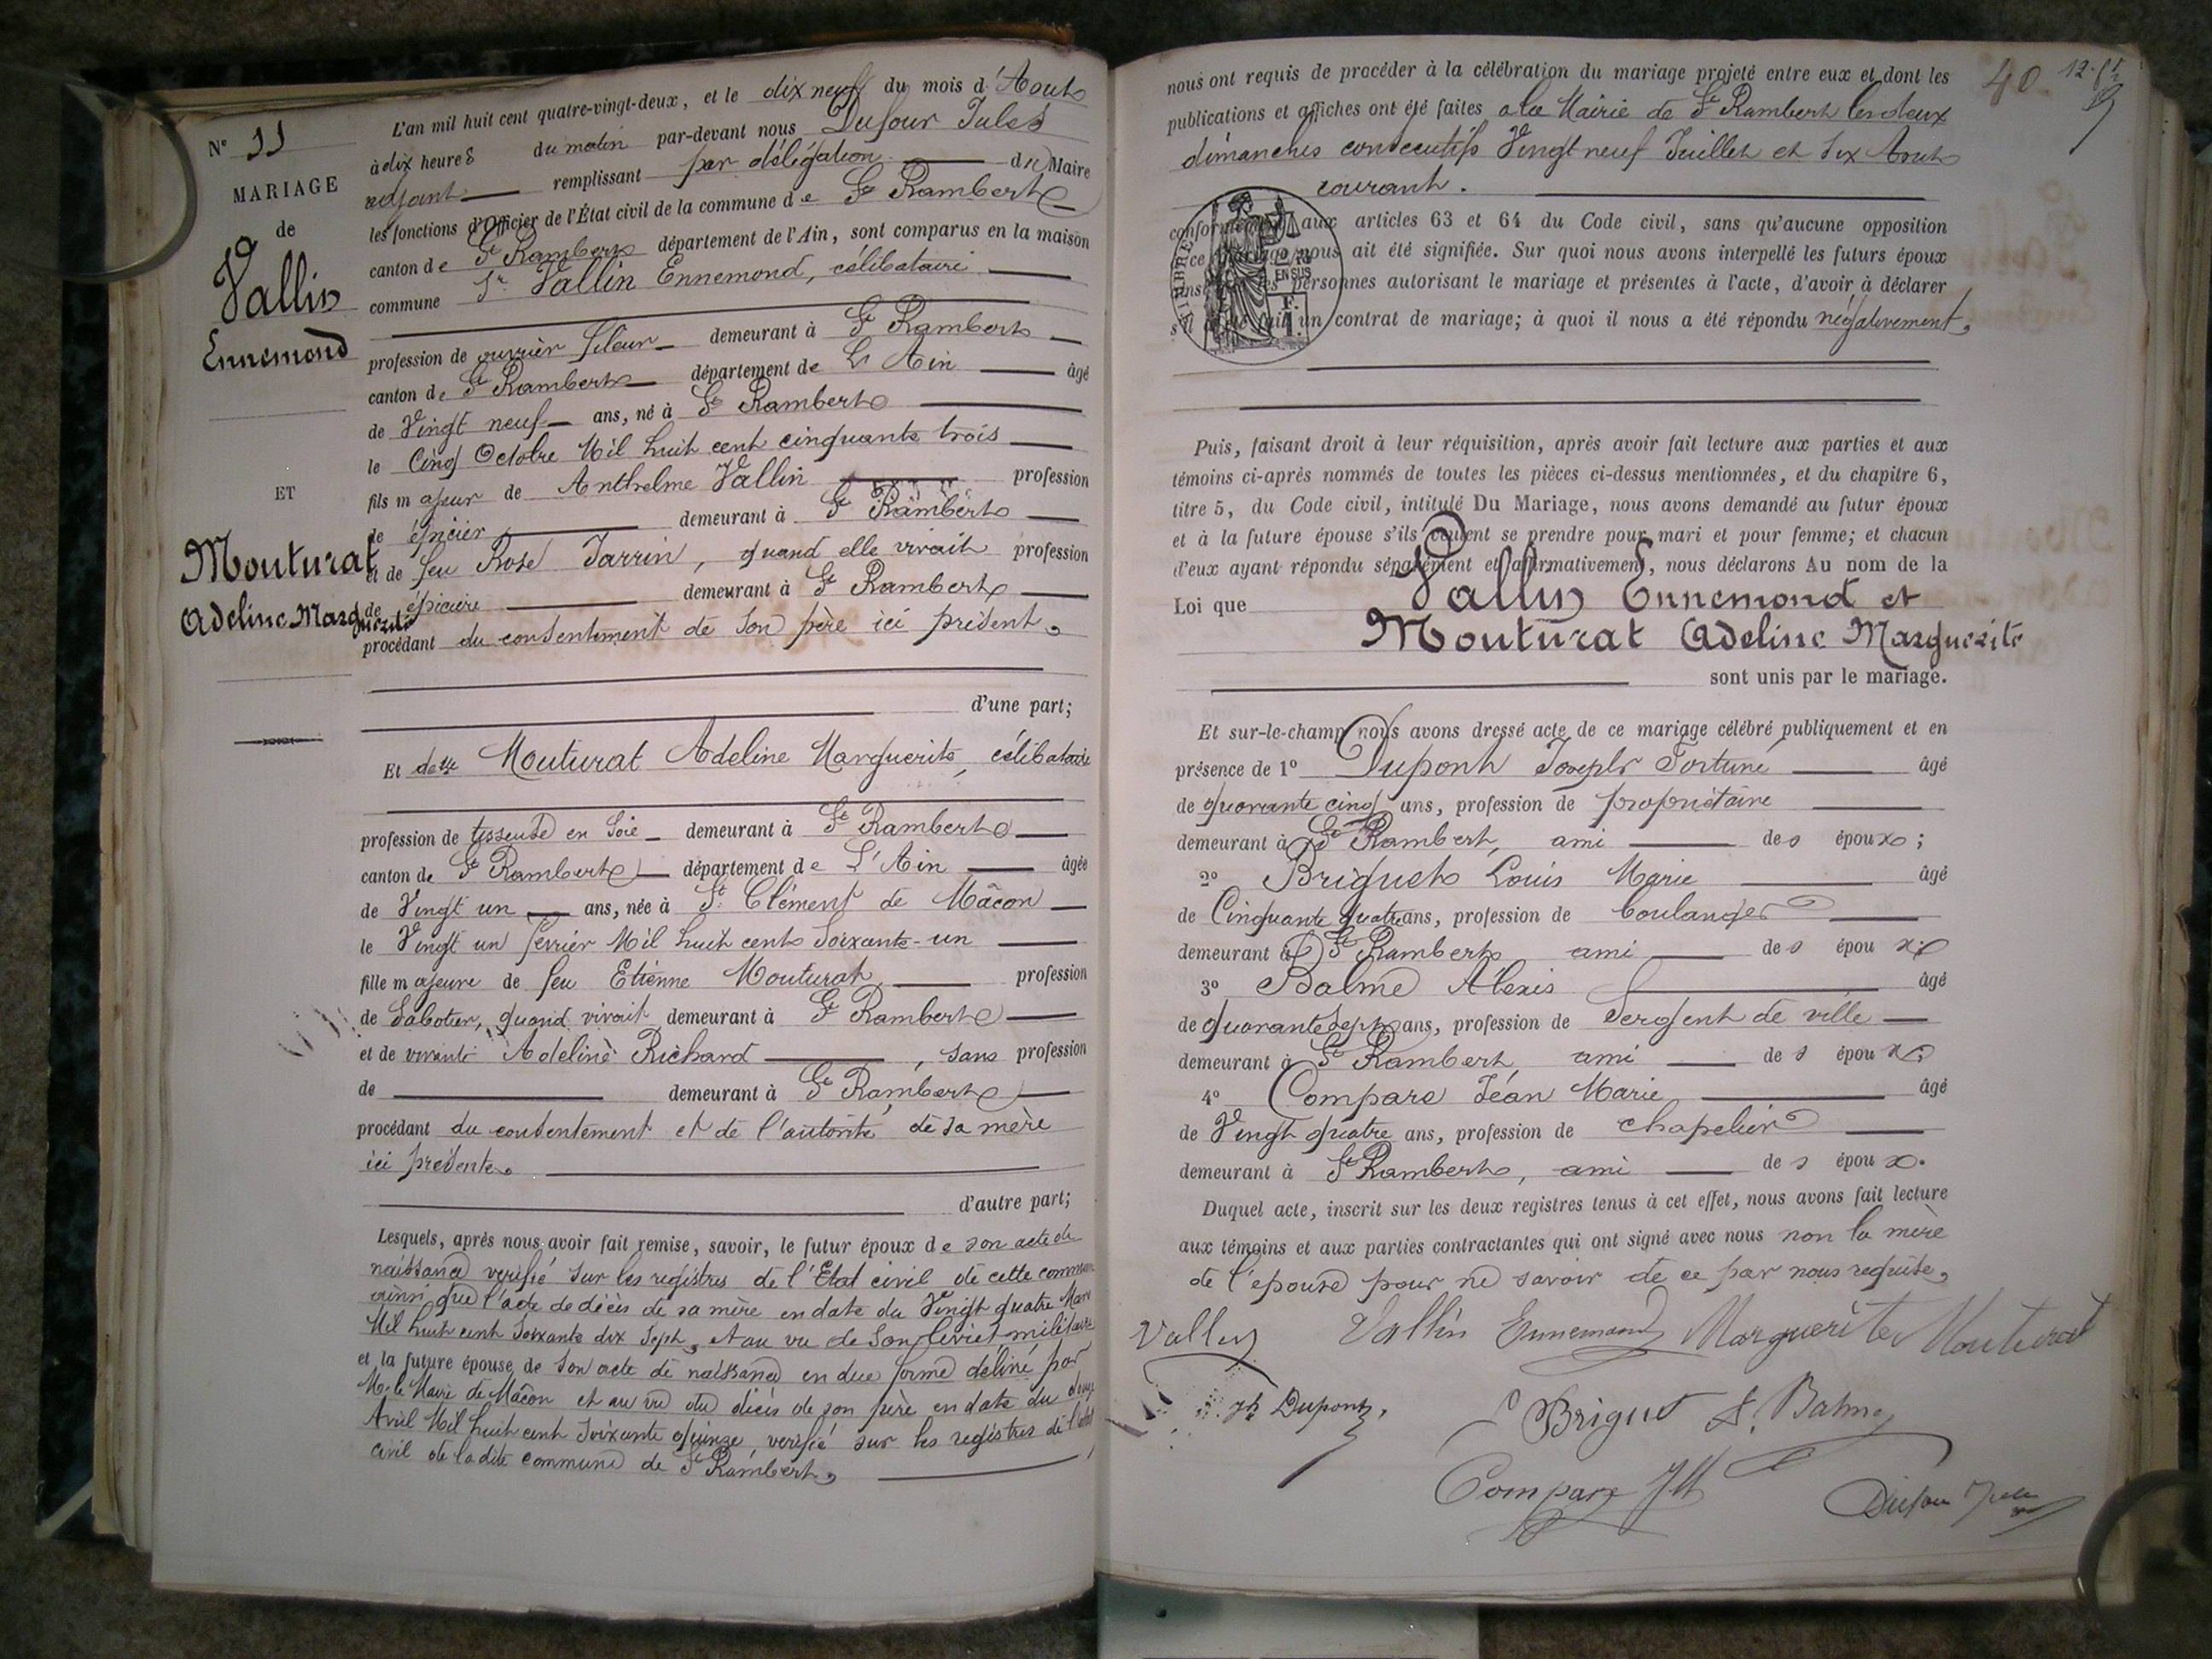 L'an mil huit cent quatre-vingt-deux, et le dix neuf du mois d'Aout
à dix heures du matin par-devant nous Dufour Jules
adjoint remplissant par délégation du Maire
les fonctions d'Officier de l'État civil de la commune de St Rambert
canton de St Rambert département de l'Ain, sont comparus en la maison
commune Sr Vallin Ennemond, célibataire
profession de ouvrier fileur demeurant à St Rambert
canton de St Rambert département de L'Ain âgé
de Vingt neuf ans, né à St Rambert
le Cinq Octobre Mil huit cent cinquante trois
fils majeur de Anthelme Vallin profession
de épicier demeurant à St Rambert
et de feu Rose Jarrin, quand elle vivait profession
de épicière demeurant à St Rambert
procédant du consentement de son père ici présent.
d'une part;
Et delle Mouturat Adeline Marguerite, célibataire
profession de tisseuse en Soie demeurant à St Rambert
canton de St Rambert département de L'Ain âgée
de Vingt un ans, née à St Clément de Mâcon
le Vingt un février Mil huit cent soixante-un
fille majeure de feu Etienne Mouturat profession
de Sabotier, quand vivait demeurant à St Rambert
et de vivante Adeline Richard, sans profession
de demeurant à St Rambert
procédant du consentement et de l'autorité de sa mère
ici présente.
d'autre part;
Lesquels, après nous avoir fait remise, savoir, le futur époux de son acte de
naissance verifié sur les registres de l'Etat civil de cette commune
ainsi que l'acte de décès de sa mère en date du Vingt quatre Mars
Mil huit cent soixante dix sept, et au vu de son livret militaire
et la future épouse de son acte de naissance en due forme délivré par
Mr le Maire de Mâcon et au vu du décès de son père en date du douze
Avril Mil huit cent soixante quinze, verifié sur les registres de l'état
civil de la dite commune de St Rambert.
N° 33
MARIAGE
de
Vallin
Ennemond
ET
Mouturat
Adeline Marguerite
40
nous ont requis de procéder à la célébration du mariage projeté entre eux et dont les
publications et affiches ont été faites a la Mairie de St Rambert les deux
dimanches consecutifs Vingt neuf Juillet et Six Aout
courant.
conformément aux articles 63 et 64 du Code civil, sans qu'aucune opposition
ce mariage nous ait été signifiée. Sur quoi nous avons interpellé les futurs époux
ainsi les personnes autorisant le mariage et présentes à l'acte, d'avoir à déclarer
s'il fait un contrat de mariage; à quoi il nous a été répondu négativement.
TIMBRE
2/10
EN SUS
F.
1
Puis, faisant droit à leur réquisition, après avoir fait lecture aux parties et aux
témoins ci-après nommés de toutes les pièces ci-dessus mentionnées, et du chapitre 6,
titre 5, du Code civil, intitulé Du Mariage, nous avons demandé au futur époux
et à la future épouse s'ils veulent se prendre pour mari et pour femme; et chacun
d'eux ayant répondu séparément et affirmativement, nous déclarons Au nom de la
Loi que Vallin Ennemond et
Mouturat Adeline Marguerite
sont unis par le mariage.
Et sur-le-champ nous avons dressé acte de ce mariage célébré publiquement et en
présence de 1° Dupont Joseph Fortuné âgé
de quarante cinq ans, profession de propriétaire
demeurant à St Rambert, ami des époux;
2° Briguet Louis Marie âgé
de Cinquante quatre ans, profession de boulanger
demeurant à St Rambert ami des époux;
3° Balme Alexis âgé
de quarante sept ans, profession de Sergent de ville
demeurant à St Rambert, ami des époux;
4° Compare Jéan Marie âgé
de Vingt quatre ans, profession de chapelier
demeurant à St Rambert, ami des époux.
Duquel acte, inscrit sur les deux registres tenus à cet effet, nous avons fait lecture
aux témoins et aux parties contractantes qui ont signé avec nous non la mère
de l'épouse pour ne savoir de ce par nous requise.
Vallin Vallin Ennemond Marguerite Mouturat
Jh Dupont, L Briguet A. Balme
Compare JM Dufour Jules